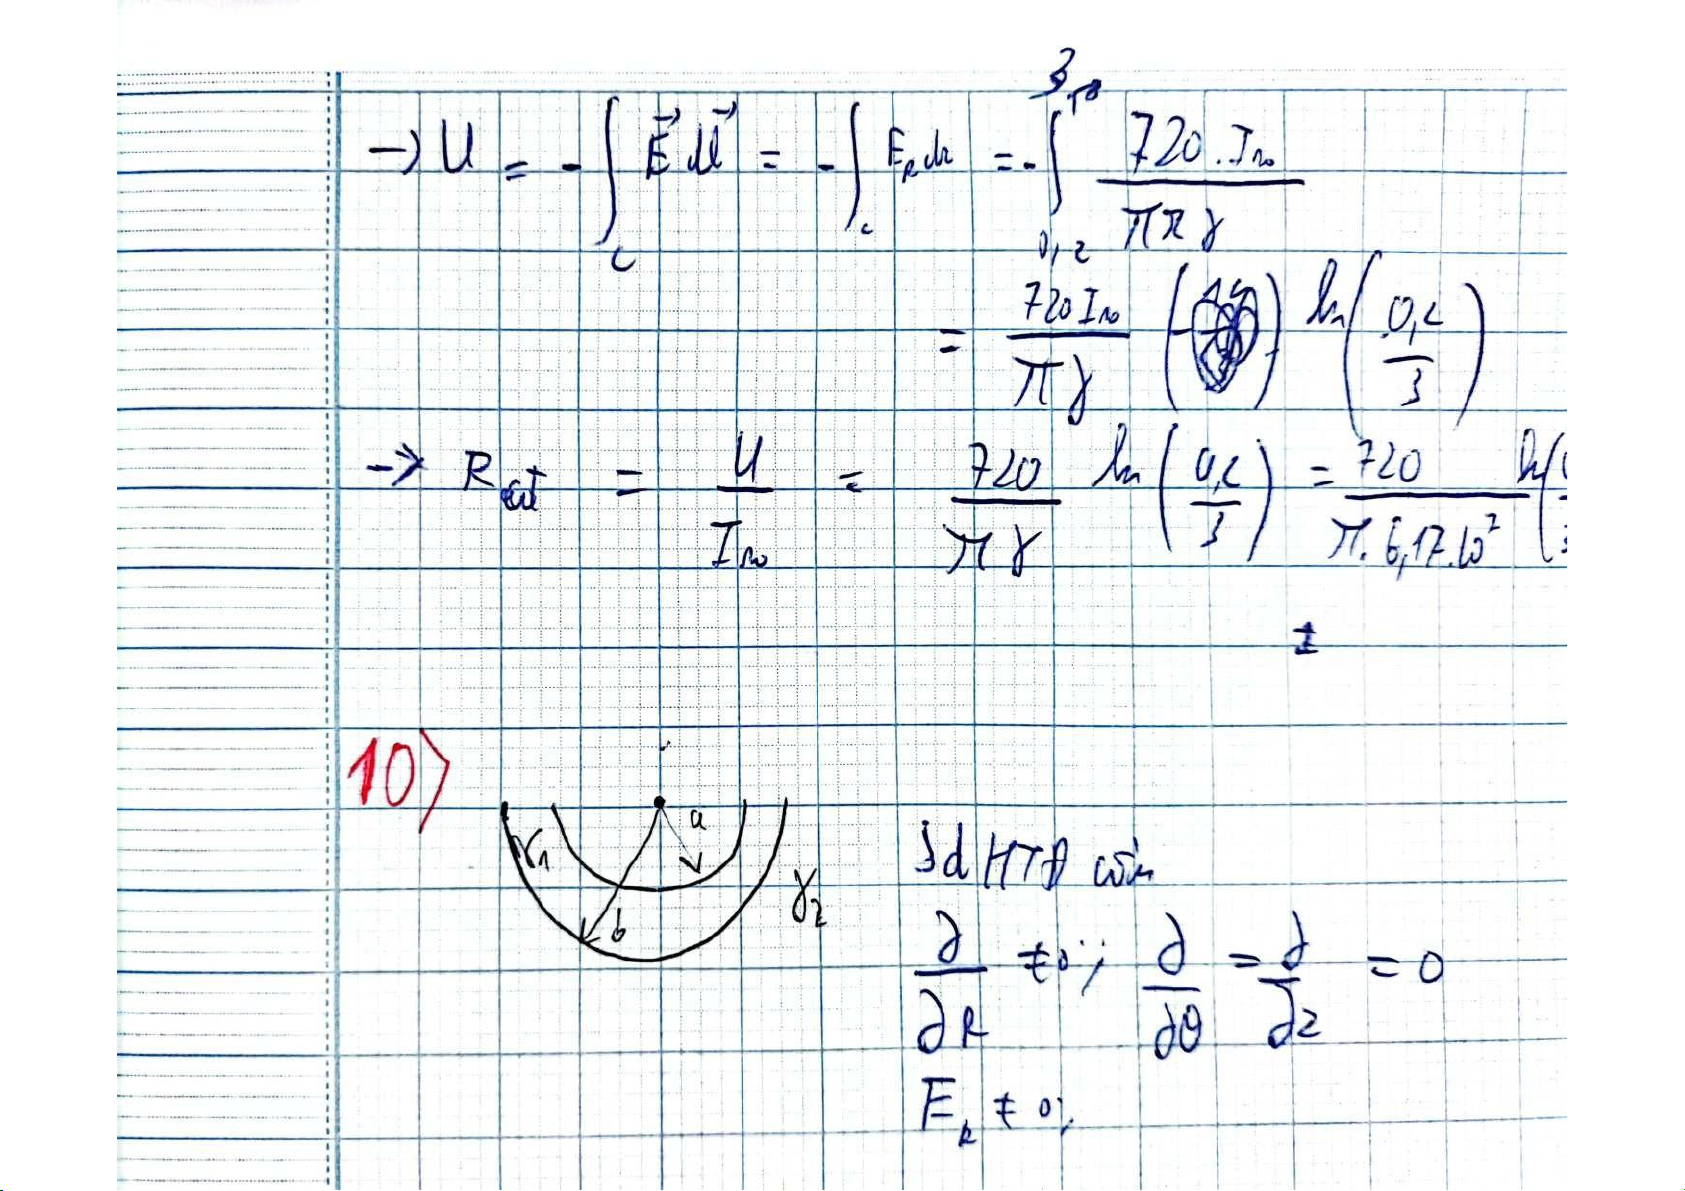 → U = - ∫_c E⃗ dl⃗ = - ∫_c E_R dr = - ∫_{0,2}^{3} 720 . I_ro / π r γ
= 720 I_ro / π γ ln ( 0,2 / 3 )
→ R_cđ = U / I_ro = 720 / π γ ln ( 0,2 / 3 ) = 720 / π . 6,17 . 10^7 ln (
10)
a
γ1
γ2
b
Sd HTĐ
∂/∂R ≠ 0 ; ∂/∂θ = ∂/∂z = 0
E_R ≠ 0 ;